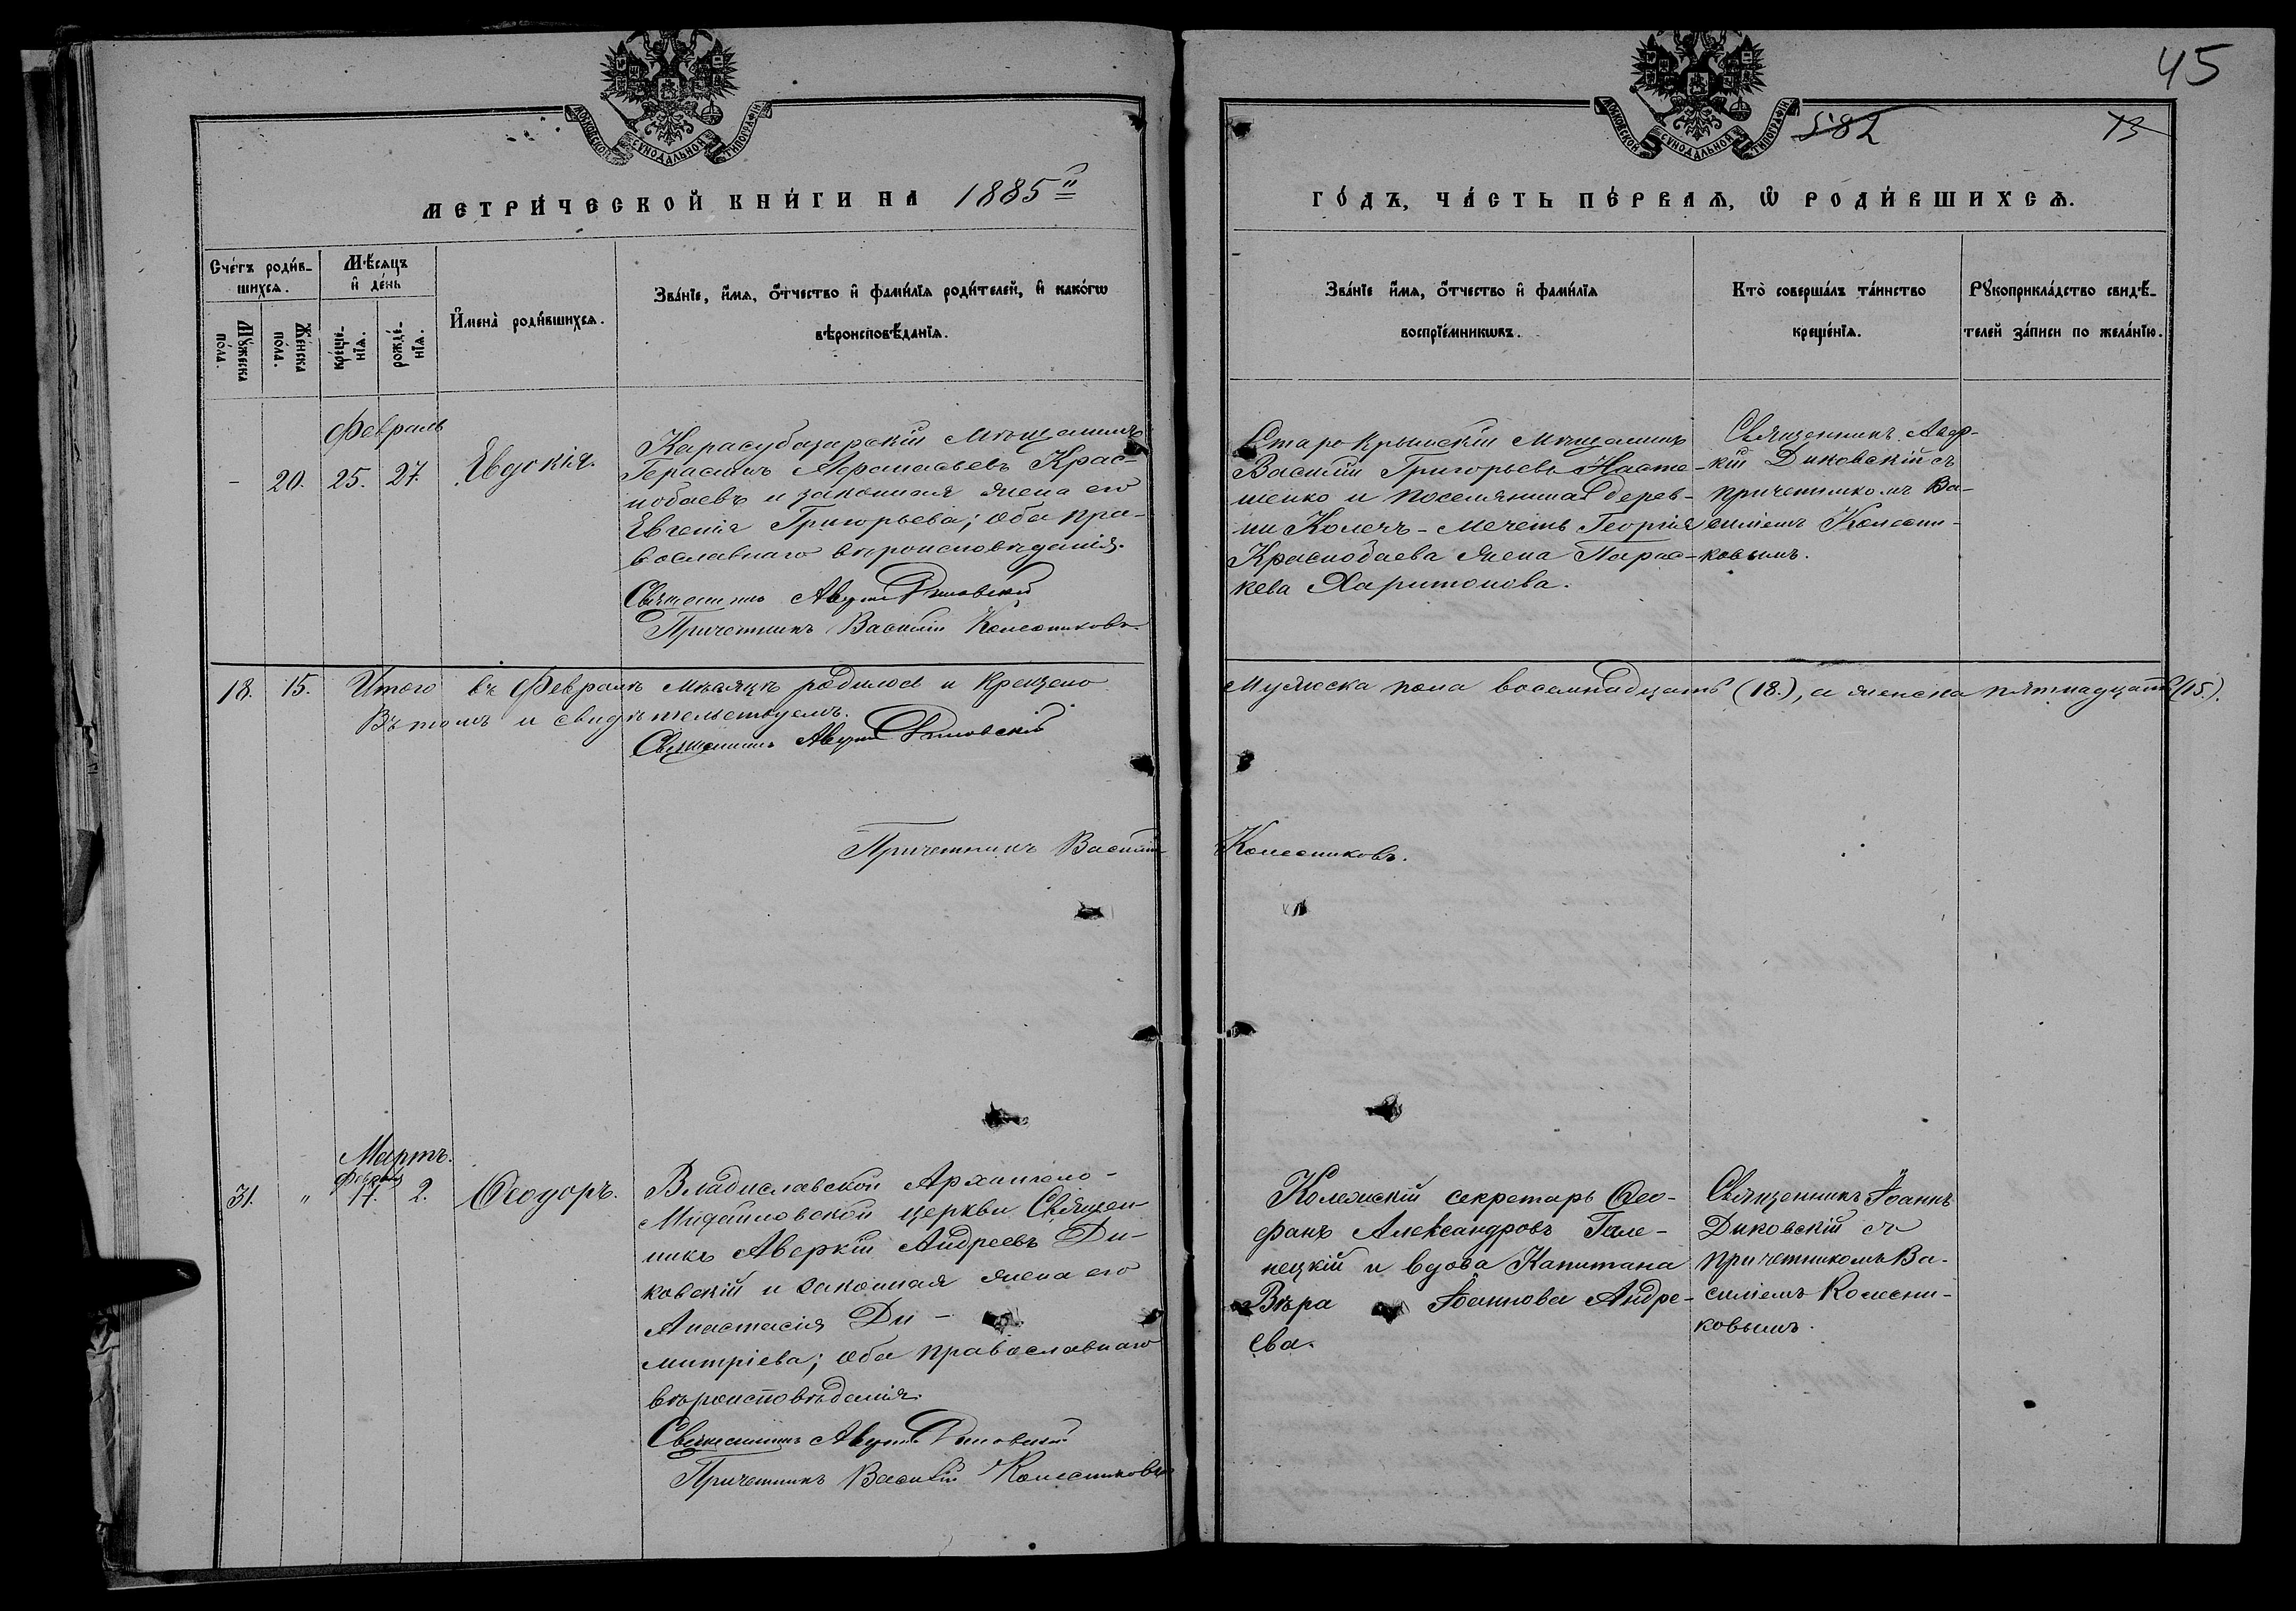 45
МОСКОВСКОЙ СѴНОДАЛЬНОЙ ТИПОГРАФІИ
МОСКОВСКОЙ СѴНОДАЛЬНОЙ ТИПОГРАФІИ
582
13
МЕТРИ́ЧЕСКОЙ КНИ́ГИ НА 1885й
ГО́ДЪ, ЧА́СТЬ ПЕ́РВАѦ, Ѡ РОДИ́ВШИХСѦ.
Сче́тъ роди́в-
шихсѧ.
Мꙋ́жеска по́ла.
Же́нска по́ла.
Мѣ́сѧцъ
и҆ де́нь
креще́-
нїѧ.
рожде́-
нїѧ.
И҆мена̀ роди́вшихсѧ.
Зва́нїе, и҆́мѧ, ѻ҆́тчество и҆ фами́лїѧ роди́телей, и҆ како́гѡ
вѣроисповѣ́данїѧ.
Зва́нїе и҆́мѧ, ѻ҆́тчество и҆ фами́лїѧ
воспрїе́мникѡвъ.
Кто̀ соверша́лъ та́инство
креще́нїѧ.
Рꙋкоприкла́дство свидѣ́-
телей за́писи по жела́нїю.
Февраль
- 20. 25. 27. Евдокія.
Карасубазарскій Мѣщанинъ
Герасимъ Афанасьевъ Крас-
нобаевъ и законная жена его
Евгенія Григорьева; оба пра-
вославнаго вѣроисповѣданія.
Священникъ Аверкій Диковскій
Причетникъ Василій Колесниковъ.
Старокрымскій Мѣщанинъ
Василій Григорьевъ Насте-
шенко и поселянина дерев-
ни Колечъ-Мечеть Георгія
Краснобаева жена Парас-
кева Харитонова.
Священникъ Авер-
кій Диковскій съ
причетникомъ Ва-
силіемъ Колесни-
ковымъ.
18. 15. Итого въ Февралѣ мѣсяцѣ родилось и крещено
мужеска пола восемнадцать (18.), а женска пятнадцать (15.).
Въ томъ и свидѣтельствуемъ.
Священникъ Аверкій Диковскій
Причетникъ Василій Колесниковъ.
Мартъ.
Февраль
31. " 17. 2. Ѳеодоръ.
Владиславской Архангело-
Михайловской церкви Священ-
никъ Аверкій Андреевъ Ди-
ковскій и законная жена его
Анастасія Ди-
митріева; оба православнаго
вѣроисповѣданія.
Священникъ Аверкій Диковскій
Причетникъ Василій Колесниковъ
Колежскій секретарь Ѳео-
фанъ Александровъ Гале-
нецкій и вдова Капитана
Вѣра Іоаннова Андре-
ева.
Священникъ Іоаннъ
Диковскій съ
причетникомъ Ва-
силіемъ Колесни-
ковымъ.